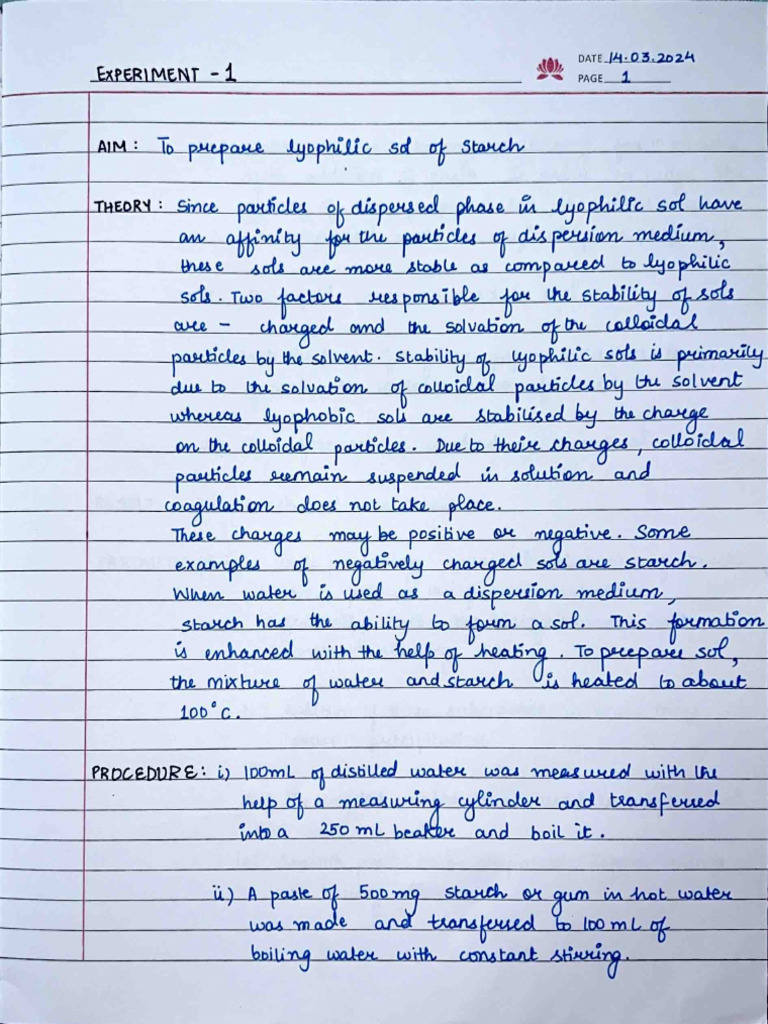 EXPERIMENT - 1
DATE 14.03.2024
PAGE 1
AIM: To prepare lyophilic sol of Starch
THEORY: Since particles of dispersed phase in lyophilic sol have
an affinity for the particles of dispersion medium,
these sols are more stable as compared to lyophilic
sols. Two factors responsible for the stability of sols
are - charged and the solvation of the colloidal
particles by the solvent. Stability of lyophilic sols is primarily
due to the solvation of colloidal particles by the solvent
whereas lyophobic sols are stabilised by the charge
on the colloidal particles. Due to their charges, colloidal
particles remain suspended in solution and
coagulation does not take place.
These charges may be positive or negative. Some
examples of negatively charged sols are starch.
When water is used as a dispersion medium,
starch has the ability to form a sol. This formation
is enhanced with the help of heating. To prepare sol,
the mixture of water and starch is heated to about
100°C.
PROCEDURE: i) 100mL of distilled water was measured with the
help of a measuring cylinder and transferred
into a 250 mL beaker and boil it.
ii) A paste of 500 mg starch or gum in hot water
was made and transferred to 100 mL of
boiling water with constant stirring.